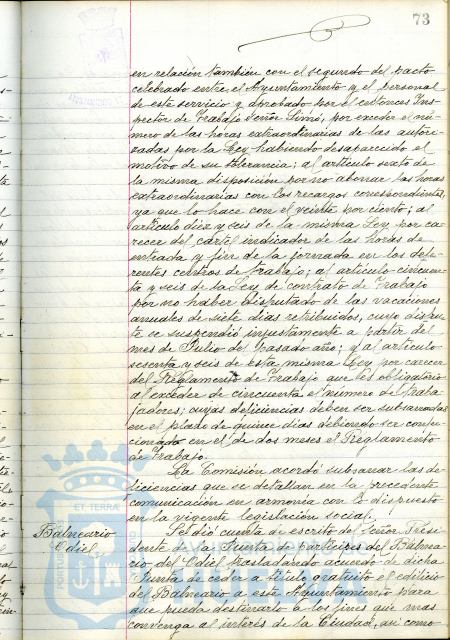 73
en relación también con el segundo del pacto
celebrado entre el Ayuntamiento y el personal
de este servicio y aprobado por el entonces Ins-
pector de Trabajo Señor Simó, por exceder el nú-
mero de las horas extraordinarias de las autori-
zadas por la Ley habiendo desaparecido el
motivo de su tolerancia; al artículo sexto de
la misma disposición por no abonar las horas
extraordinarias con los recargos correspondientes,
ya que lo hace con el veinte por ciento; al
artículo diez y seis de la misma Ley por ca-
recer del cartel indicador de las horas de
entrada y fin de la jornada en los dife-
rentes centros de trabajo; al artículo cincuen-
ta y seis de la Ley de contrato de Trabajo
por no haber disfrutado de las vacaciones
anuales de siete días retribuidos, cuyo disfru-
te se suspendió injustamente a partir del
mes de Julio del pasado año; y al artículo
sesenta y seis de esta misma Ley por carecer
del Reglamento de Trabajo que es obligatorio
al exceder de cincuenta el número de traba-
jadores; cuyas deficiencias deben ser subsanadas
en el plazo de quince días debiendo ser confec-
cionado en el de dos meses el Reglamento
de Trabajo.
La Comisión acordó subsanar las de-
ficiencias que se detallan en la precedente
comunicación en armonía con lo dispuesto
en la vigente legislación social.
Balneario
Odiel
Se dió cuenta de escrito del Señor Presi-
dente de la Junta de partícipes del Balnea-
rio del Odiel trasladando acuerdo de dicha
Junta de ceder a título gratuito el edificio
del Balneario a este Ayuntamiento para
que pueda destinarlo a los fines que mas
convenga al interés de la Ciudad, así como